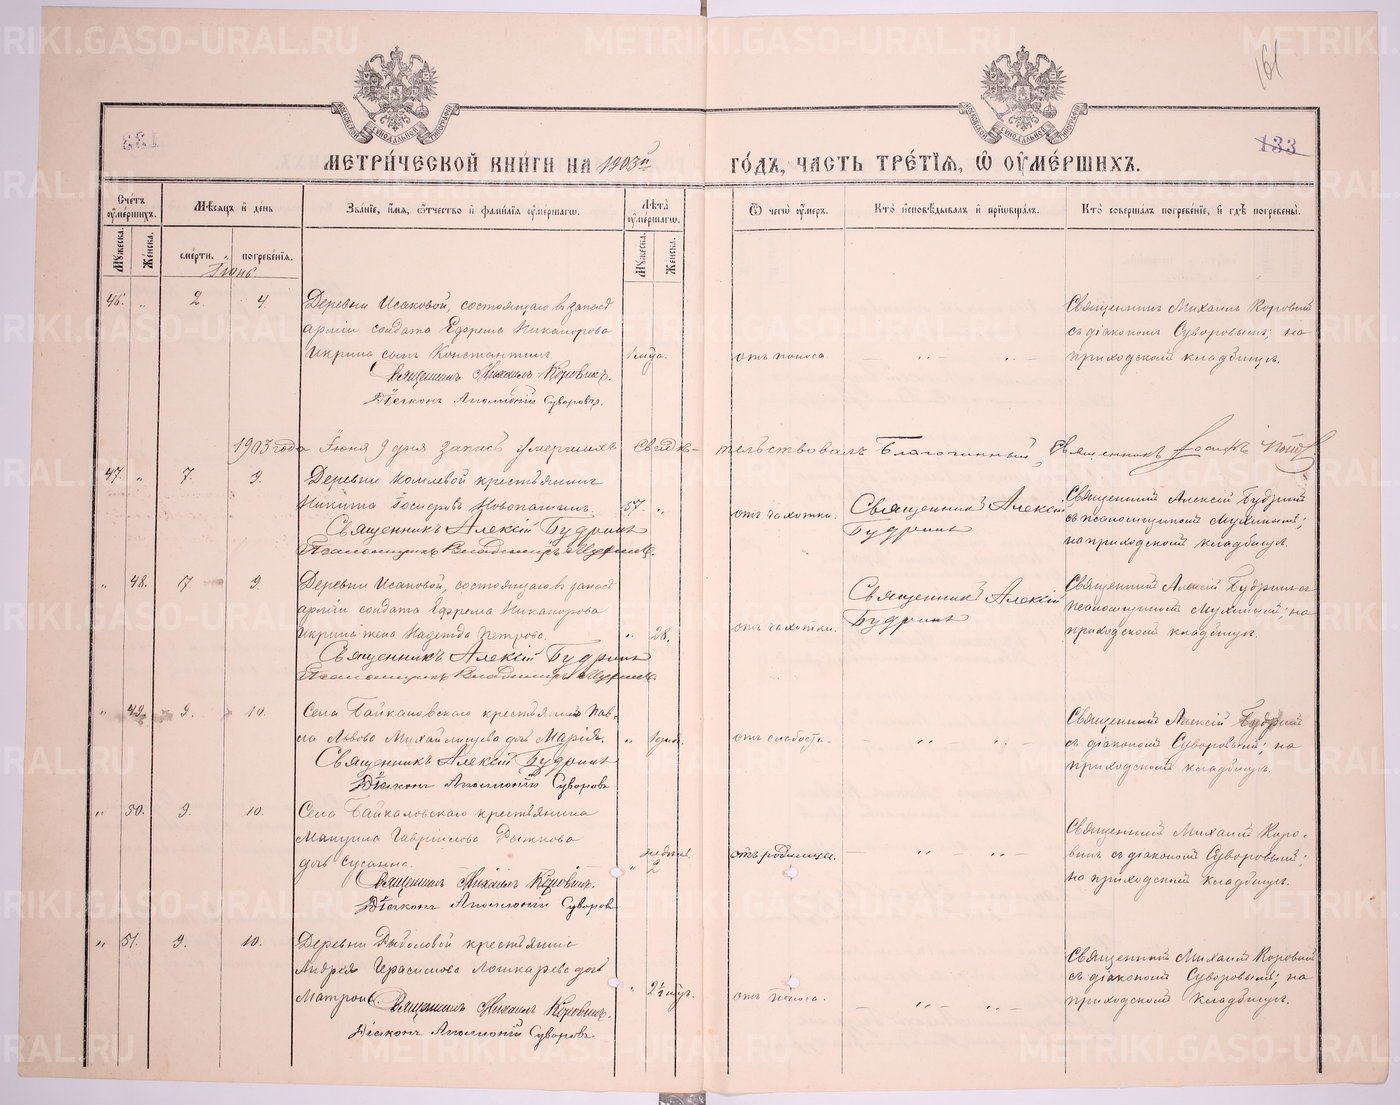 161
133
133
МОСКОВСКОЙ СѴНОДАЛЬНОЙ ТИПОГРАФІИ
МОСКОВСКОЙ СѴНОДАЛЬНОЙ ТИПОГРАФІИ
МЕТРИ́ЧЕСКОЙ КНИ́ГИ НА 1903й ГО́ДЪ, ЧАСТЬ ТРЕ́ТІѦ, Ѡ ОУМЕ́РШИХЪ.
Счетъ оумершихъ.
Мѣсяцъ и день
Званіе, имя, отчество и фамилія оумершагѡ.
Лѣта оумершагѡ.
Ѿ чегѡ оумеръ.
Кто исповѣдывалъ и пріобщалъ.
Кто совершалъ погребеніе, и гдѣ погребены.
Мужеска.
Женска.
смерти.
погребенія.
Мужеска.
Женска.
Іюнь.
46. „ 2. 4. Деревни Исаковой, состоящаго въ запасѣ
арміи солдата Ефрема Никанорова
Икрина сынъ Константинъ. 1 мѣся. отъ поноса. — „ — „ —
Священникъ Михаилъ Коровинъ.
Діаконъ Аполлоній Суворовъ.
Священникъ Михаилъ Коровинъ
съ діакономъ Суворовымъ; на
приходскомъ кладбищѣ.
1903 года Іюня 9 дня запись умершихъ свидѣтельствовалъ Благочинный, Священникъ
47. „ 7. 9. Деревни Комлевой крестьянинъ
Никита Новопашинъ. 57. „ отъ чахотки.
Священникъ Алексій Будринъ
Псаломщикъ Владимиръ Мухинъ.
Священникъ Алексій
Будринъ
Священникъ Алексій Будринъ
съ псаломщикомъ Мухинымъ;
на приходскомъ кладбищѣ.
„ 48. 7. 9. Деревни Исаковой, состоящаго въ запасѣ
арміи солдата Ефрема Никанорова
Икрина жена Надежда Петрова. „ 26. отъ чахотки.
Священникъ Алексій Будринъ
Псаломщикъ Владимиръ Мухинъ.
Священникъ Алексій
Будринъ
Священникъ Алексій Будринъ съ
псаломщикомъ Мухинымъ; на
приходскомъ кладбищѣ.
„ 49. 9. 10. Села Байкаловскаго крестьянина Пав-
ла Львова Михайлищева дочь Марія. „ 1 дня. отъ слабости. — „ — „ —
Священникъ Алексій Будринъ
Діаконъ Аполлоній Суворовъ
Священникъ Алексій Будринъ
съ діакономъ Суворовымъ; на
приходскомъ кладбищѣ.
„ 50. 9. 10. Села Байкаловскаго крестьянина
Мануила Гавріилова Рыжкова
дочь Сусанна. „ недѣли 2 отъ родимца. — „ — „ —
Священникъ Михаилъ Коровинъ.
Діаконъ Аполлоній Суворовъ
Священникъ Михаилъ Коро-
винъ съ діакономъ Суворовымъ;
на приходскомъ кладбищѣ.
„ 51. 9. 10. Деревни Рыболовой крестьянина
Андрея Герасимова Лошкарева дочь
Матрона. „ 2½ мѣся. отъ поноса. — „ — „ —
Священникъ Михаилъ Коровинъ.
Діаконъ Аполлоній Суворовъ
Священникъ Михаилъ Коровинъ
съ діакономъ Суворовымъ; на
приходскомъ кладбищѣ.
METRIKI.GASO-URAL.RU